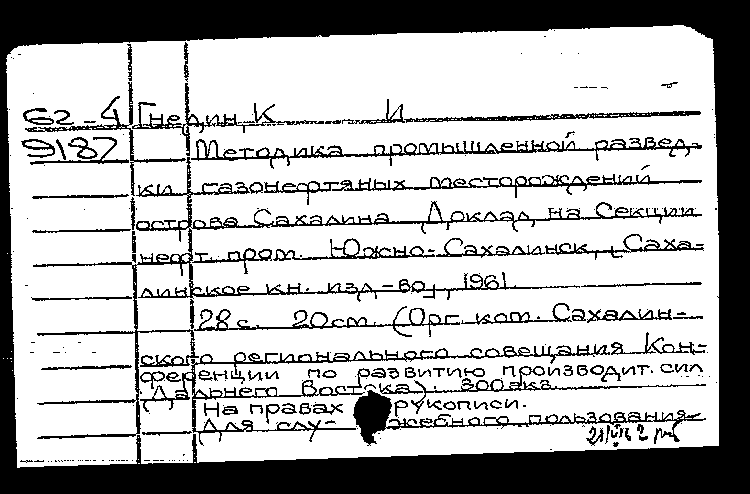 62-4 Гнедин, К И
9187 Методика промышленной развед-
ки газонефтяных месторождений
острова Сахалина Доклад на Секции
нефт. пром. Южно-Сахалинск, Саха-
линское кн. изд-во, 1961.
28 с. 20 см. (Орг ком. Сахалин-
ского регионального совещания Кон-
ференции по развитию производит. сил
Дальнего Востока). 300 экз.
На правах рукописи.
Для слу-жебного пользования